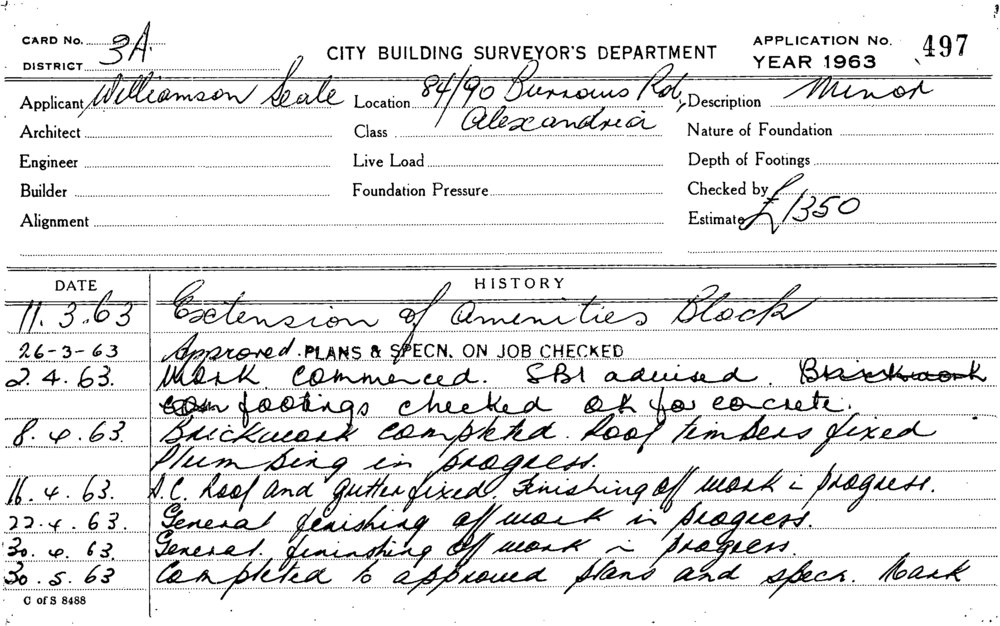 CARD No. 3A
DISTRICT
CITY BUILDING SURVEYOR'S DEPARTMENT
APPLICATION No. 497
YEAR 1963
Applicant Williamson Seale Location 84/90 Burrows Rd, Description Minor
Architect Class Alexandria Nature of Foundation
Engineer Live Load Depth of Footings
Builder Foundation Pressure Checked by
Alignment Estimate £1350
DATE HISTORY
11.3.63 Extension of Amenities Block
26-3-63 Approved. PLANS & SPECN. ON JOB CHECKED
2.4.63. Work commenced. SBI advised. Brickwork
com footings checked ok for concrete.
8.4.63. Brickwork completed. Roof timbers fixed
Plumbing in progress.
16.4.63. A.C. Roof and gutter fixed. Finishing off work in progress.
22.4.63. General finishing off work in progress.
30.4.63. General finishing off work in progress.
30.5.63 Completed to approved plans and specn.
C of S 8488